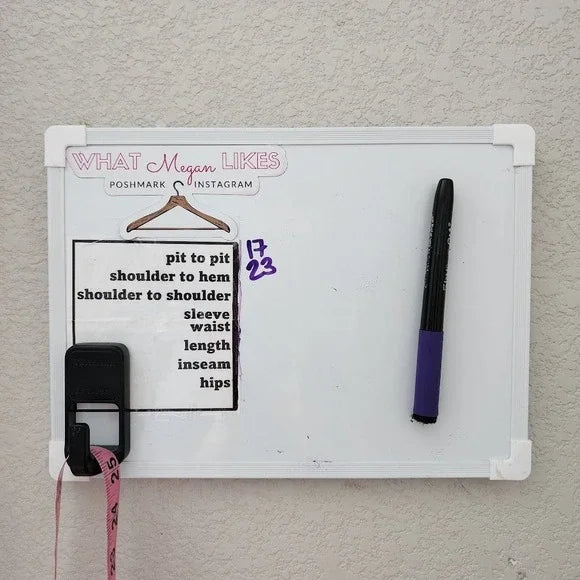 WHAT Megan LIKES
POSHMARK INSTAGRAM
pit to pit 17
shoulder to hem 23
shoulder to shoulder
sleeve
waist
length
inseam
hips
25
24
23